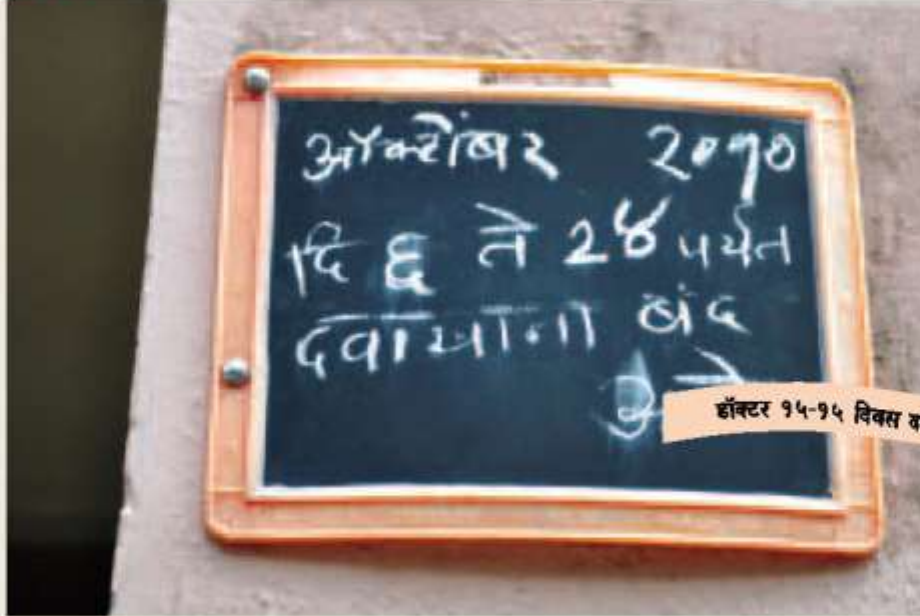 ऑक्टोंबर २०१०
दि ६ ते २४ पर्यंत
दवाखाना बंद
डॉक्टर १५-१५ दिवस